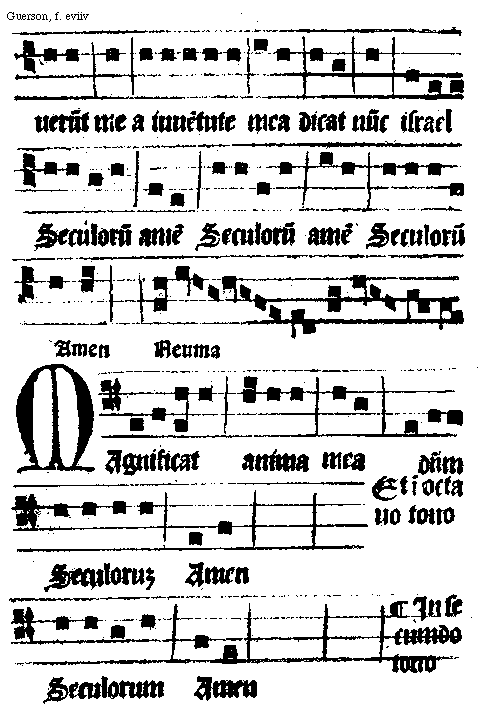 Guerson, f. eviiv
uerūt me a iuuētute mea dicat nūc israel
Seculorū amē Seculorū amē Seculorū
Amen Neuma
MAgnificat anima mea dn̄m
Et i octa
uo tono
Seculoruꝫ Amen
¶ In se
cundo
tono
Seculorum Amen